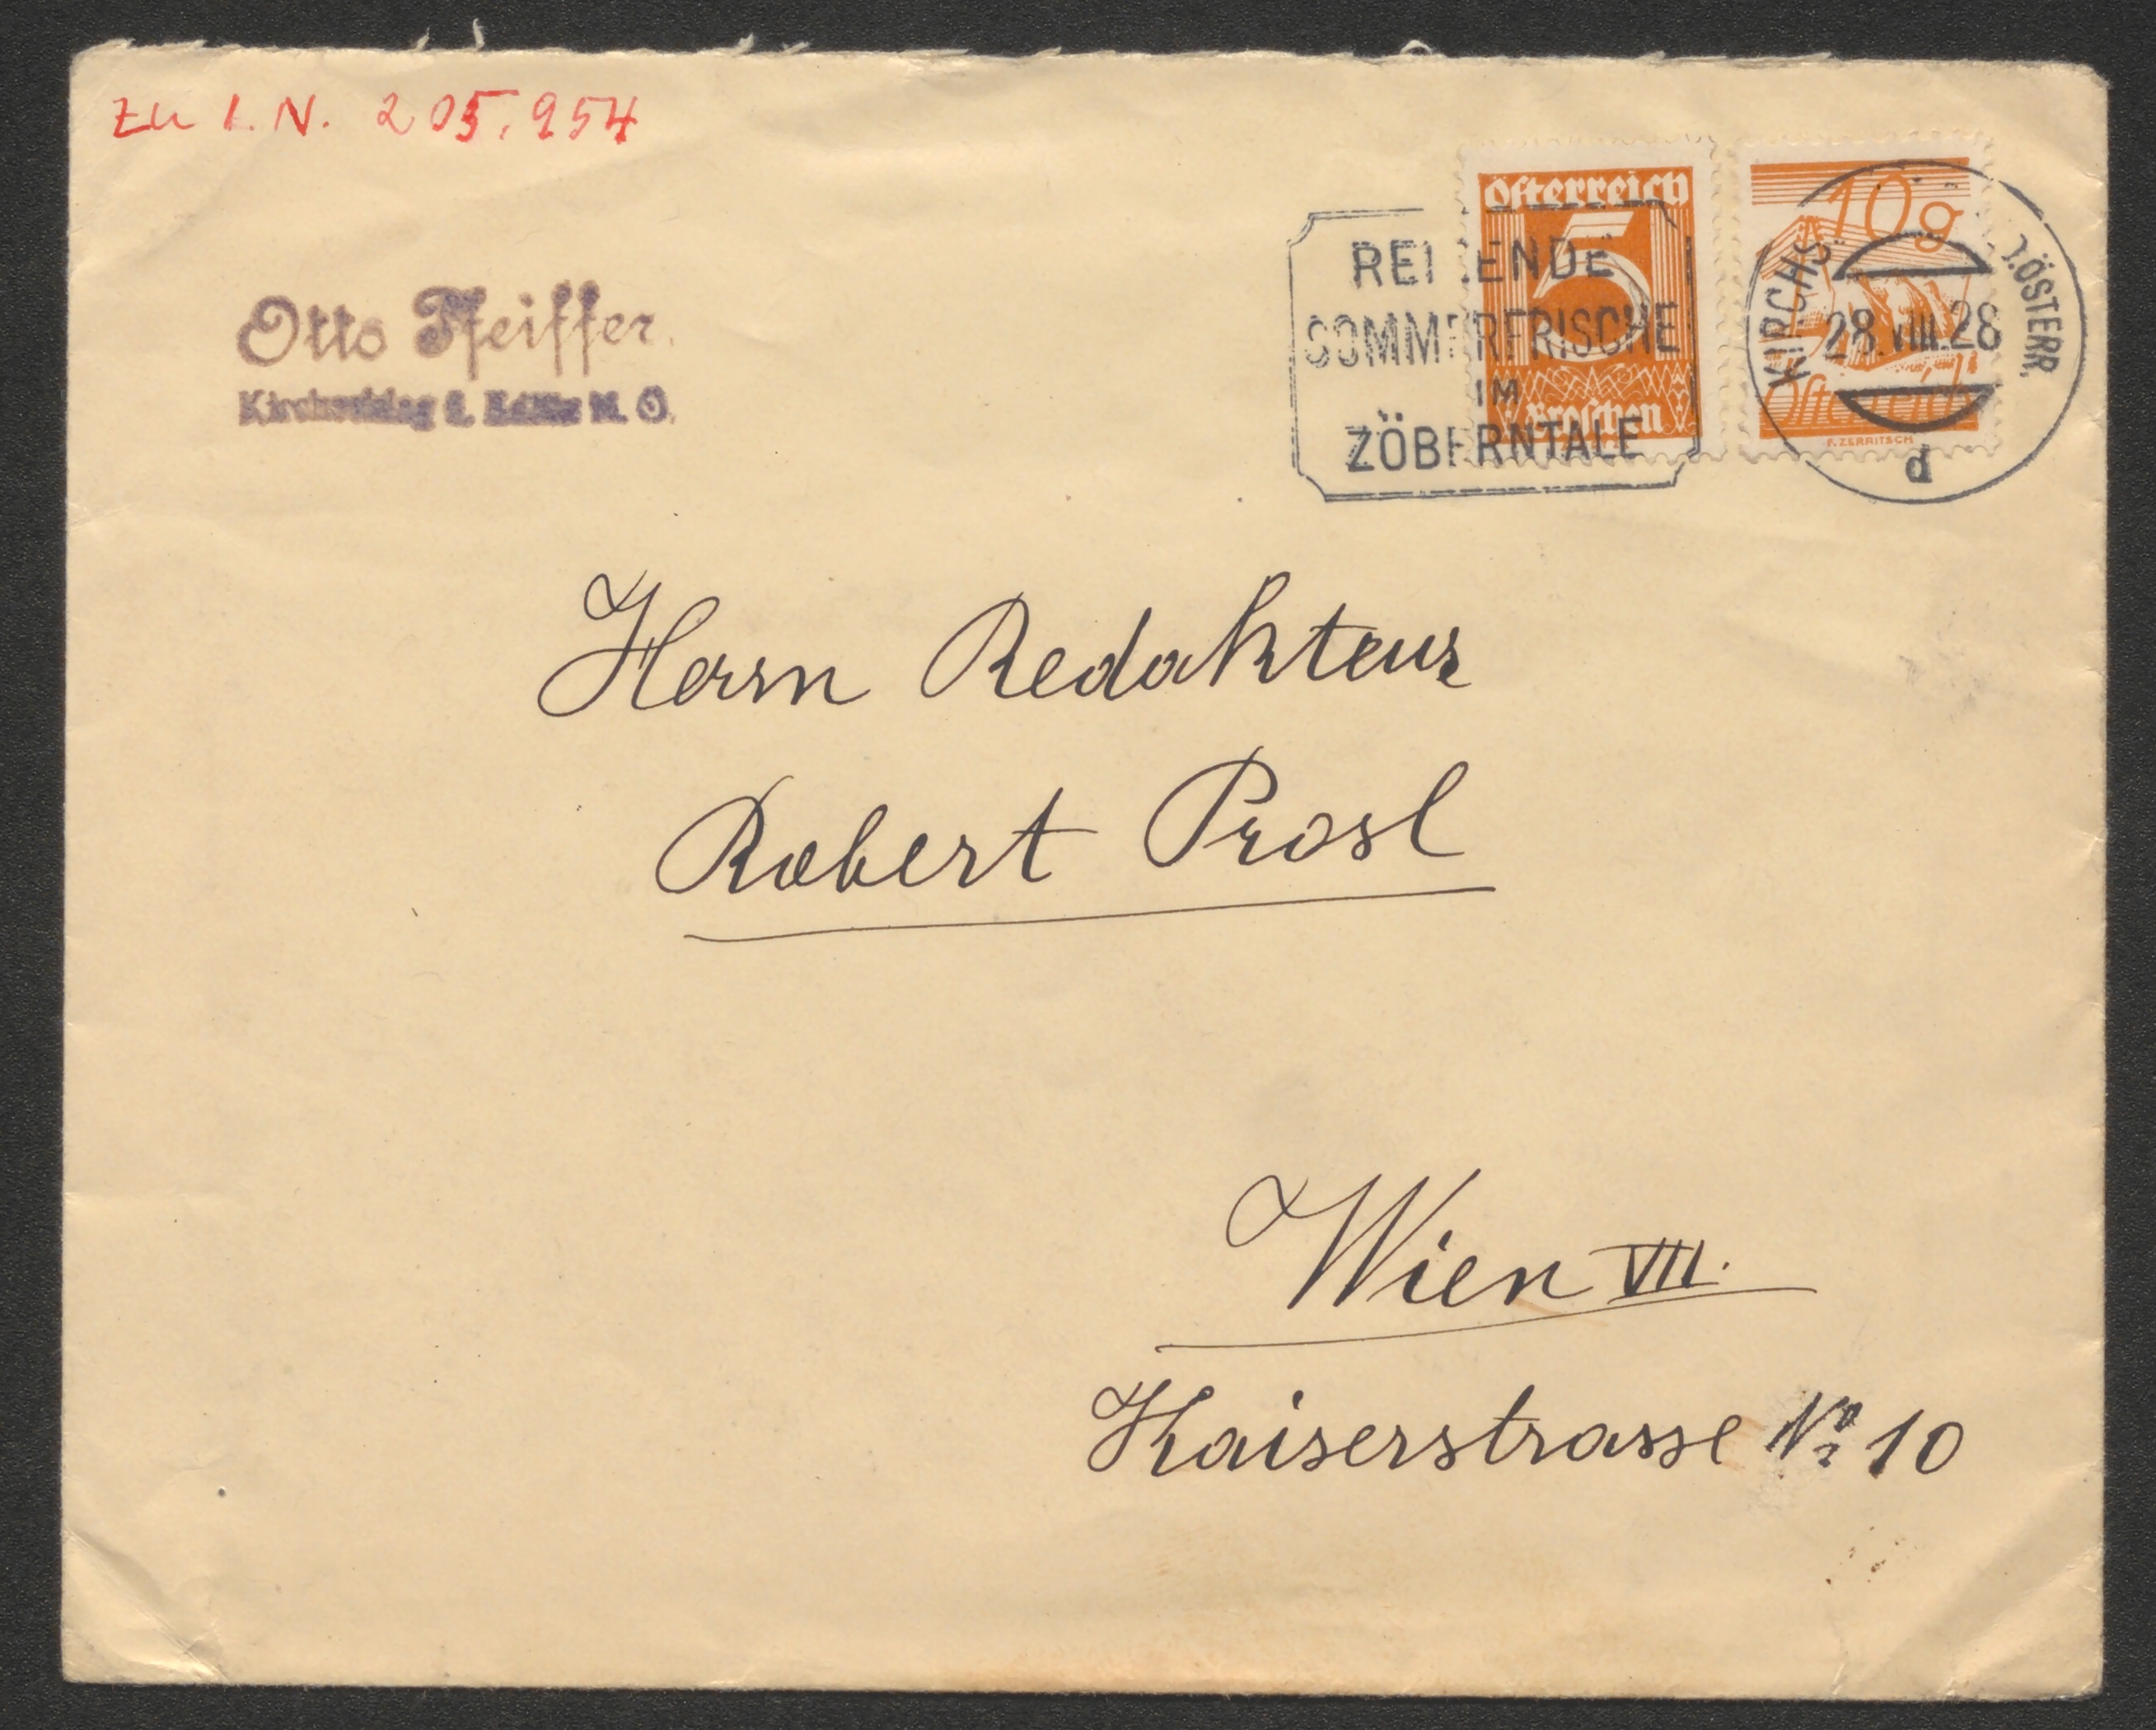 zu I. N. 205.954
Otto Pfeiffer
Kirchschlag N. O.
Österreich
5
Groschen
10g
Österreich
F. ZERRITSCH
REIZENDE
SOMMERFRISCHE
IM
ZÖBERNTALE
KIRCHS
ÖSTERR.
28.VIII.28
d
Herrn Redakteur
Robert Prosl
Wien VII.
Kaiserstrasse No 10